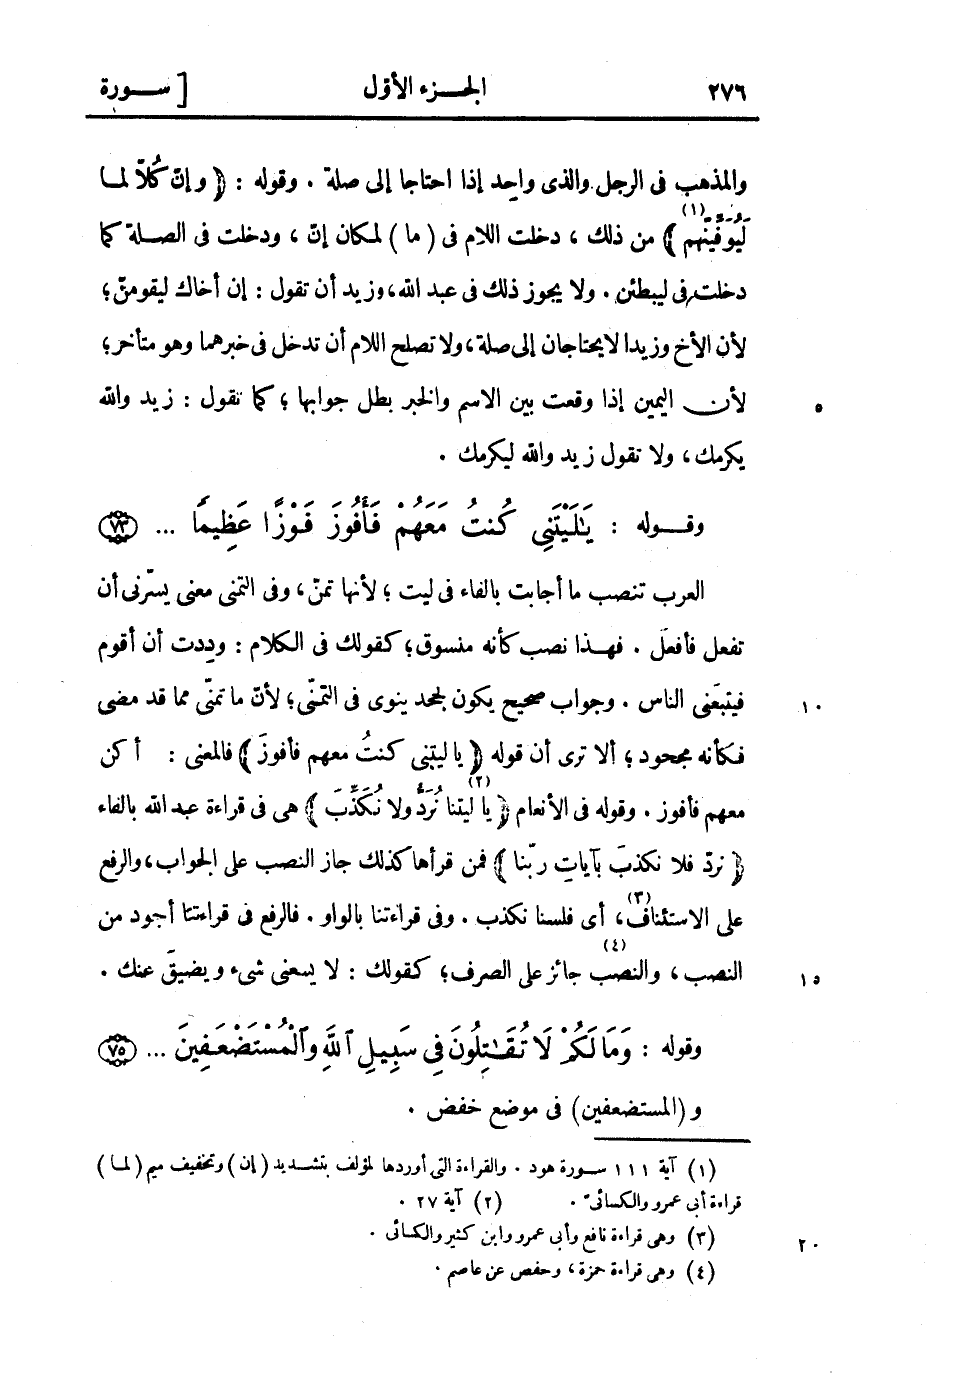 ٢٧٦ الجزء الأوّل [ سورة
والمذهب فى الرجل والذى واحد إذا احتاجا إلى صلة . وقوله : ﴿ وإنّ كُلّا لما
لَيُوَفِّيَنَّهم ﴾(١) من ذلك ، دخلت اللام فى ( ما ) لمكان إنّ ، ودخلت فى الصلة كما
دخلت فى ليبطئن . ولا يجوز ذلك فى عبد الله ، وزيد أن تقول : إن أخاك ليقومنّ ؛
لأن الأخ وزيدا لا يحتاجان إلى صلة ، ولا تصلح اللام أن تدخل فى خبرهما وهو متأخر ؛
لأن اليمين إذا وقعت بين الاسم والخبر بطل جوابها ؛ كما تقول : زيد والله ٥
يكرمك ، ولا تقول زيد والله ليكرمك .
وقوله : يَٰلَيْتَنِى كُنتُ مَعَهُمْ فَأَفُوزَ فَوْزًا عَظِيمًا ... ٧٣
العرب تنصب ما أجابت بالفاء فى ليت ؛ لأنها تمنّ ، وفى التمنى معنى يسّرنى أن
تفعل فأفعلَ . فهذا نصب كأنه منسوق ؛ كقولك فى الكلام : وددت أن أقوم
فيتبعَنى الناس . وجواب صحيح يكون لجحد ينوى فى التمنّى ؛ لأنّ ما تمنّى مما قد مضى ١٠
فكأنه مجحود ؛ ألا ترى أن قوله ﴿ يا ليتنى كنتُ معهم فأفوزَ ﴾ فالمعنى : أكن
معهم فأفوز . وقوله فى الأنعام ﴿ يا ليتنا(٢) نُرَدُّ ولا نُكَذِّبَ ﴾ هى فى قراءة عبد الله بالفاء
﴿ نردّ فلا نكذبَ بآياتِ ربّنا ﴾ فمن قرأها كذلك جاز النصب على الجواب ، والرفع
على الاستئناف(٣) ، أى فلسنا نكذب . وفى قراءتنا بالواو . فالرفع فى قراءتنا أجود من
النصب ، والنصب(٤) جائز على الصرف ؛ كقولك : لا يسعنى شىء ويضيقَ عنك . ١٥
وقوله : وَمَا لَكُمْ لَا تُقَٰتِلُونَ فِى سَبِيلِ ٱللَّهِ وَٱلْمُسْتَضْعَفِينَ ... ٧٥
و (المستضعفين) فى موضع خفض .
(١) آية ١١١ سورة هود . والقراءة التى أوردها المؤلف بتشديد (إن) وتخفيف ميم (لما)
قراءة أبى عمرو والكسائى . (٢) آية ٢٧ .
(٣) وهى قراءة نافع وأبى عمرو وابن كثير والكسائى . ٢٠
(٤) وهى قراءة حمزة ، وحفص عن عاصم .